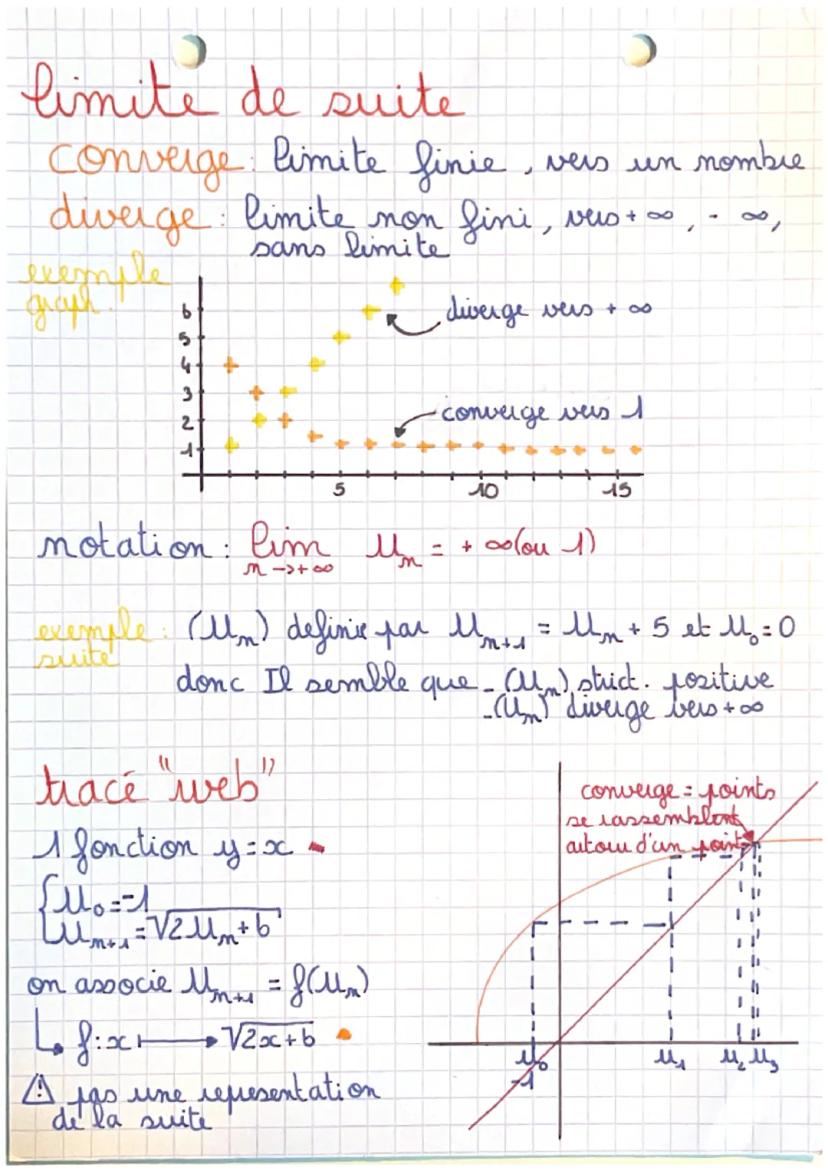 limite de suite
converge : limite finie, vers un nombre
diverge : limite non fini, vers + ∞, - ∞,
sans limite
exemple
graph.
6
5
4
3
2
1
5 10 15
diverge vers + ∞
converge vers 1
notation : lim Un = + ∞ (ou 1)
n → + ∞
exemple : (Un) definie par Un+1 = Un + 5 et U0 = 0
suite
donc Il semble que - (Un) strict. positive
- (Un) diverge vers + ∞
tracé "web"
1 fonction y = x
{U0 = -1
Un+1 = √2Un + 6
on associe Un+1 = f(Un)
↳ f : x ⟼ √2x + 6
⚠ pas une representation
de la suite
converge = points
se rassemblent
autour d'un point
U0 U1 U2 U3
-1